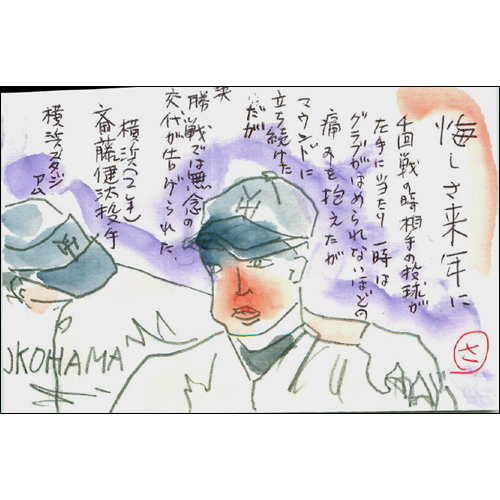 悔しさ来年に
4回戦の時相手の投球が
左手に当たり一時は
グラブがはめられないほどの
痛みを抱えたが
マウンドに
立ち続けた
だが
決
勝戦では無念の
交代が告げられた
横浜(2年)
斎藤健汰投手
横浜スタジ
アム
さ
YH
YOKOHAMA